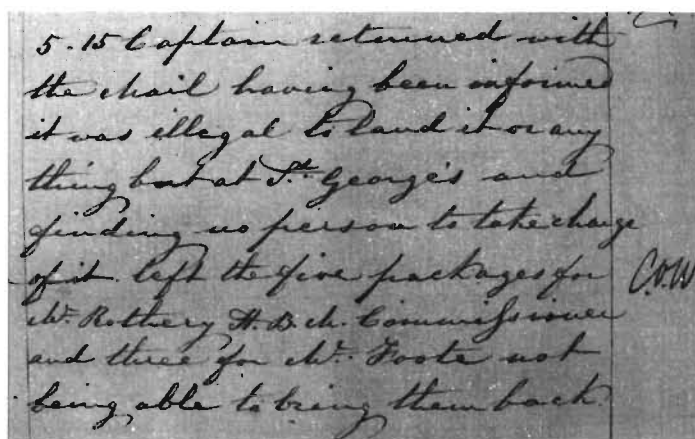 5.15 Captain returned with
the Mail having been informed
it was illegal to land it or any
thing but at St. George's and
finding no person to take charge
of it left the five packages for
Mr. Rothery H.B.M. Commissioner
and three for Mr. Foote not
being able to bring them back.
C.O.W